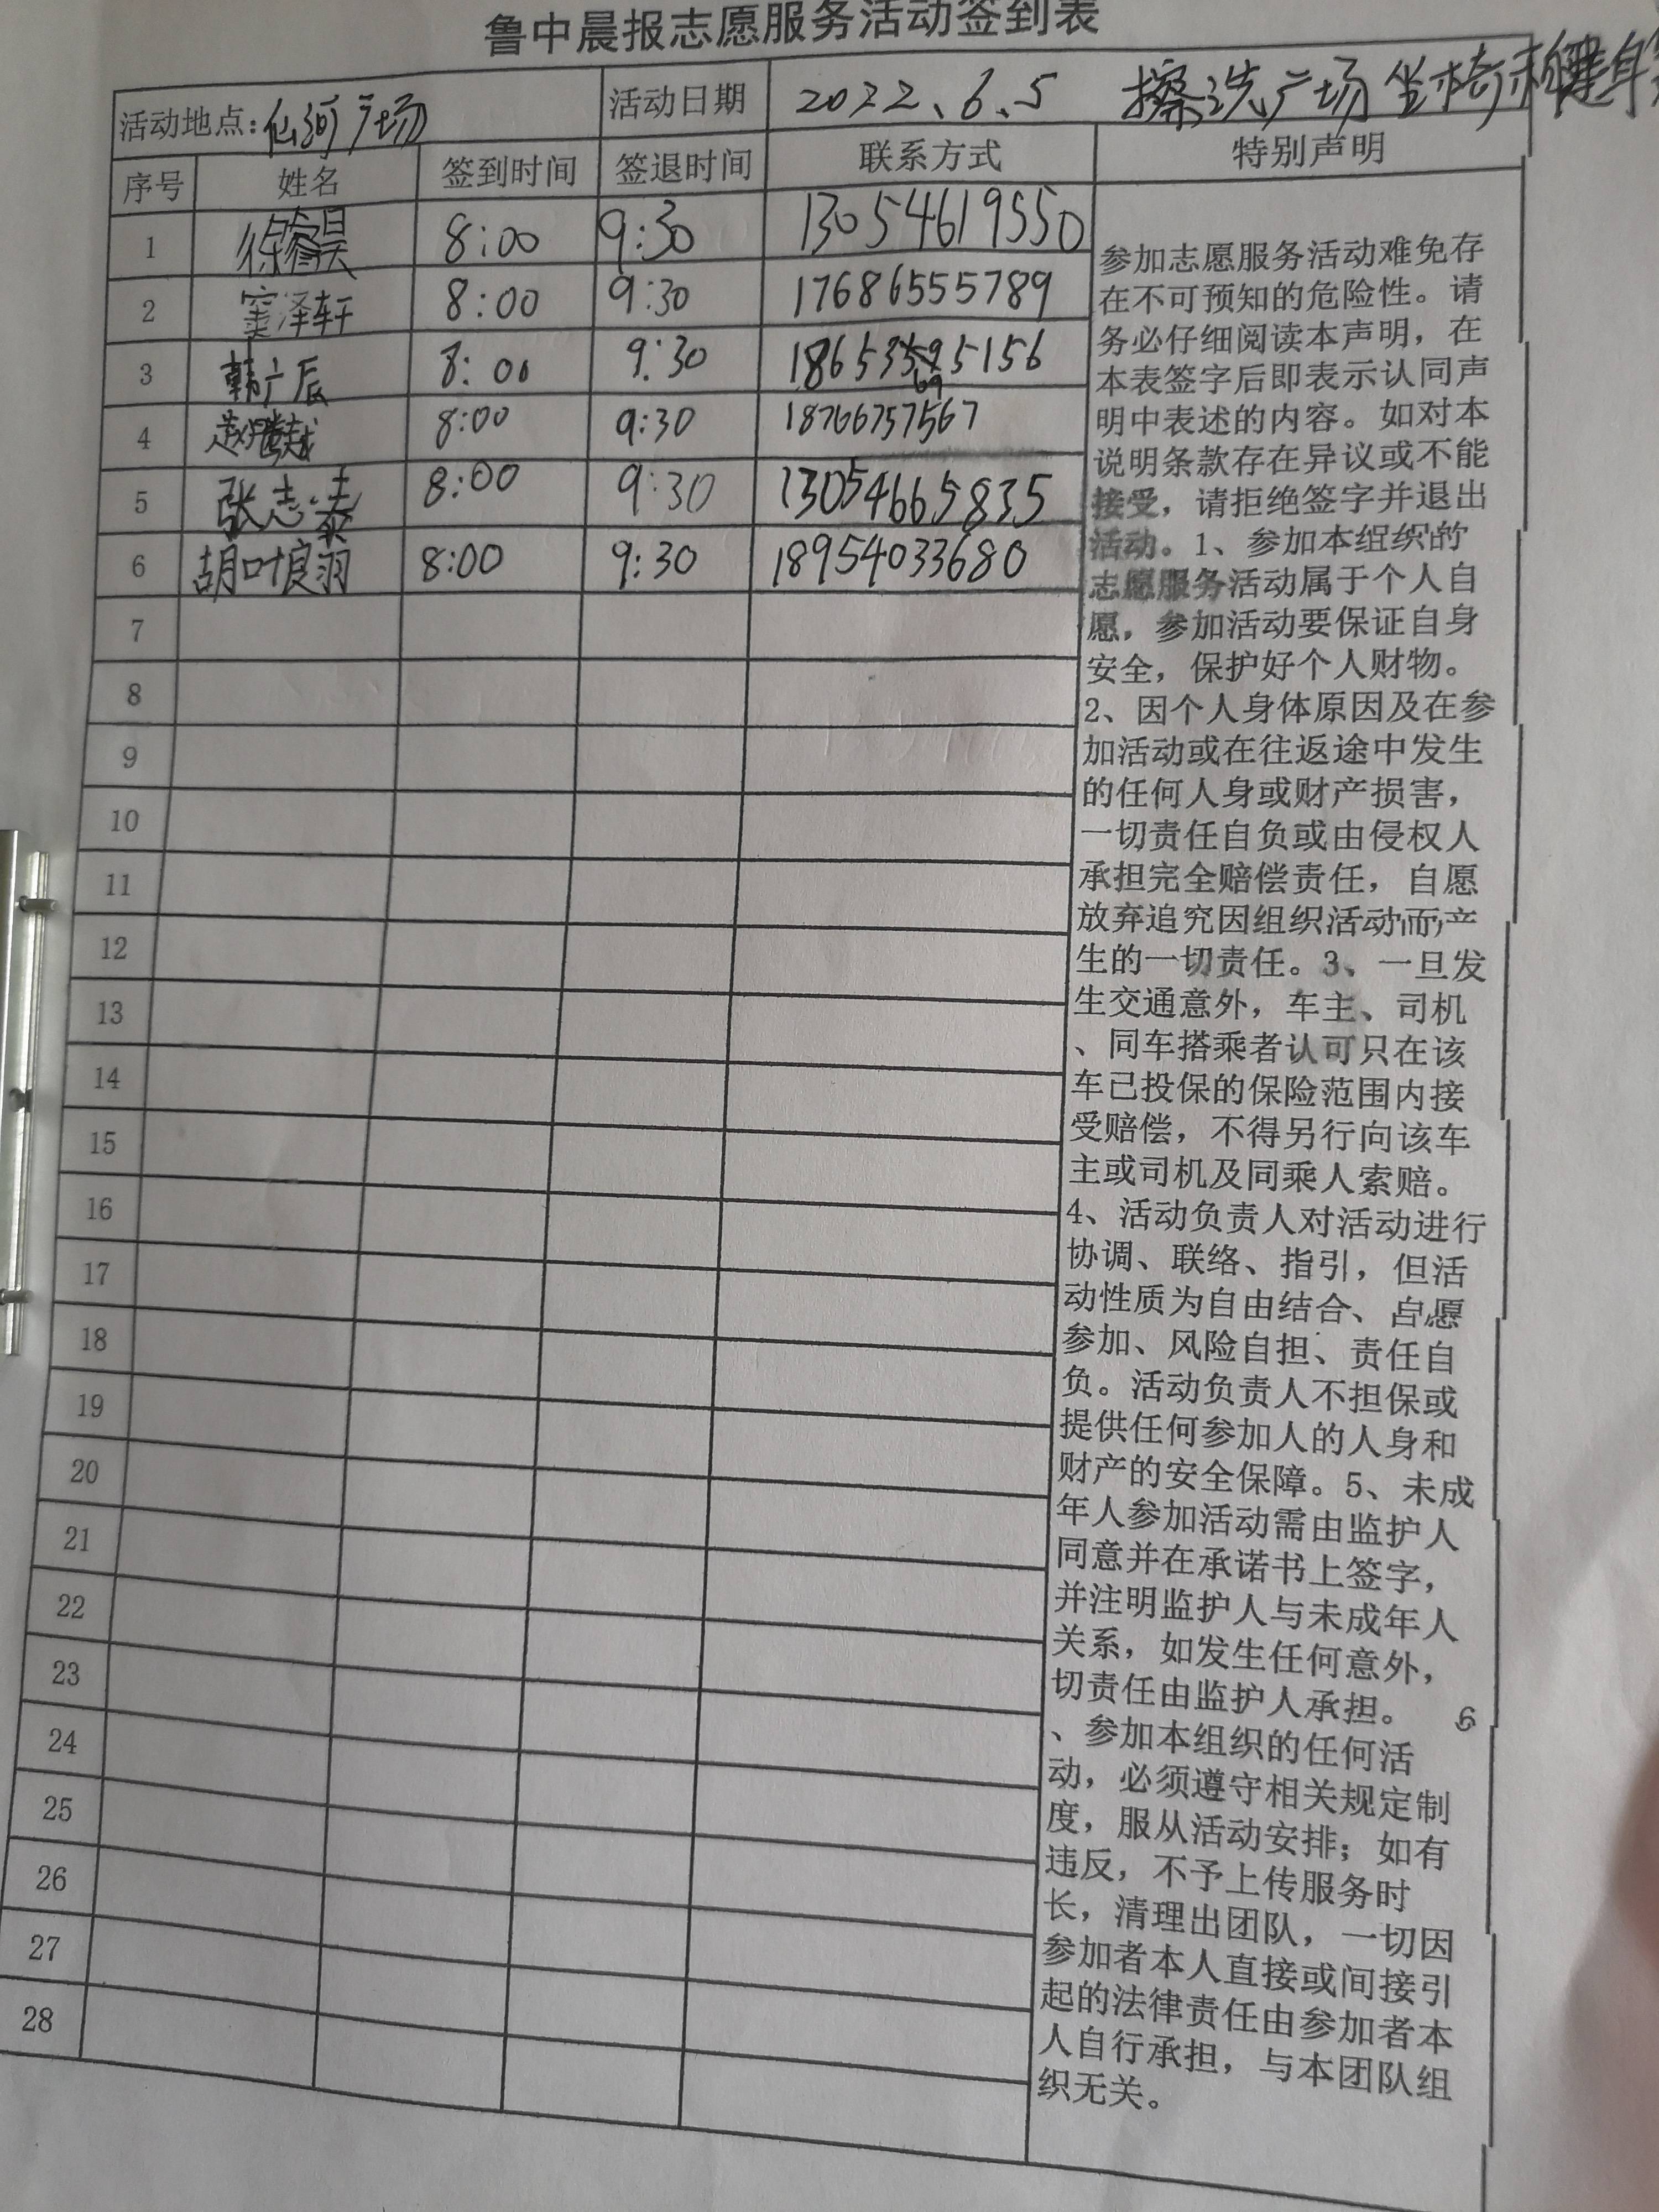 鲁中晨报志愿服务活动签到表
活动地点：仙河广场 活动日期 2022、6、5 擦洗广场坐椅和健身
序号 姓名 签到时间 签退时间 联系方式 特别声明
1 徐睿昊 8:00 9:30 13054619550
2 窦泽轩 8:00 9:30 17686555789
3 韩广辰 8:00 9:30
4 赵腾越 8:00 9:30 18766757567
5 张志泰 8:00 9:30 13054665835
6 胡叶宸羽 8:00 9:30 18954033680
7
8
9
10
11
12
13
14
15
16
17
18
19
20
21
22
23
24
25
26
27
28
参加志愿服务活动难免存
在不可预知的危险性。请
务必仔细阅读本声明，在
本表签字后即表示认同声
明中表述的内容。如对本
说明条款存在异议或不能
接受，请拒绝签字并退出
活动。1、参加本组织的
志愿服务活动属于个人自
愿，参加活动要保证自身
安全，保护好个人财物。
2、因个人身体原因及在参
加活动或在往返途中发生
的任何人身或财产损害，
一切责任自负或由侵权人
承担完全赔偿责任，自愿
放弃追究因组织活动而产
生的一切责任。3、一旦发
生交通意外，车主、司机
、同车搭乘者认可只在该
车已投保的保险范围内接
受赔偿，不得另行向该车
主或司机及同乘人索赔。
4、活动负责人对活动进行
协调、联络、指引，但活
动性质为自由结合、自愿
参加、风险自担、责任自
负。活动负责人不担保或
提供任何参加人的人身和
财产的安全保障。5、未成
年人参加活动需由监护人
同意并在承诺书上签字，
并注明监护人与未成年人
关系，如发生任何意外，
切责任由监护人承担。 6
、参加本组织的任何活
动，必须遵守相关规定制
度，服从活动安排；如有
违反，不予上传服务时
长，清理出团队，一切因
参加者本人直接或间接引
起的法律责任由参加者本
人自行承担，与本团队组
织无关。